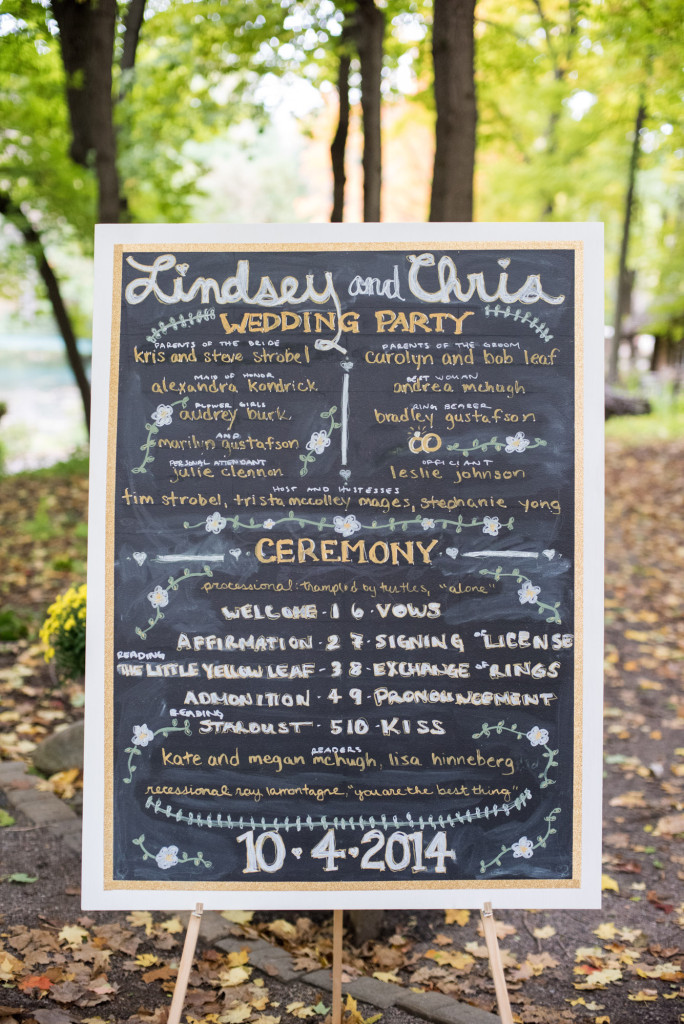 Lindsey and Chris
WEDDING PARTY
PARENTS OF THE BRIDE
kris and steve strobel
MAID OF HONOR
alexandra kondrick
FLOWER GIRLS
audrey burk
AND
marilyn gustafson
PERSONAL ATTENDANT
julie clennon
PARENTS OF THE GROOM
carolyn and bob leaf
BEST WOMAN
andrea mchugh
RING BEARER
bradley gustafson
OFFICIANT
leslie johnson
HOST AND HOSTESSES
tim strobel, trista mccolley mages, stephanie yong
CEREMONY
processional: trampled by turtles, "alone"
WELCOME · 1 6 · VOWS
AFFIRMATION · 2 7 · SIGNING OF LICENSE
READING
THE LITTLE YELLOW LEAF · 3 8 · EXCHANGE OF RINGS
ADMONITION · 4 9 · PRONOUNCEMENT
READING
STARDUST · 5 10 · KISS
READERS
kate and megan mchugh, lisa hinneberg
recessional: ray lamontagne, "you are the best thing"
10 · 4 · 2014